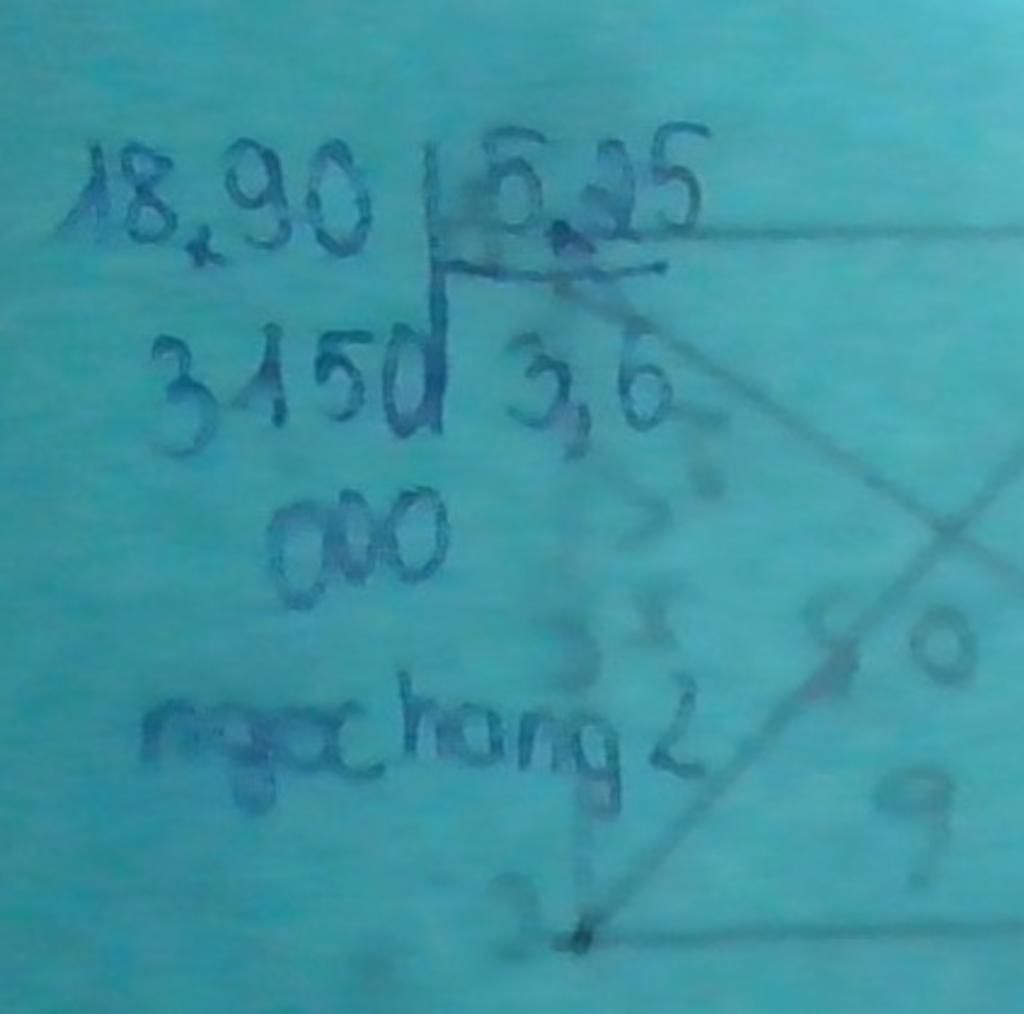 18,90 5,25
3150 3,6
000
ngochang2